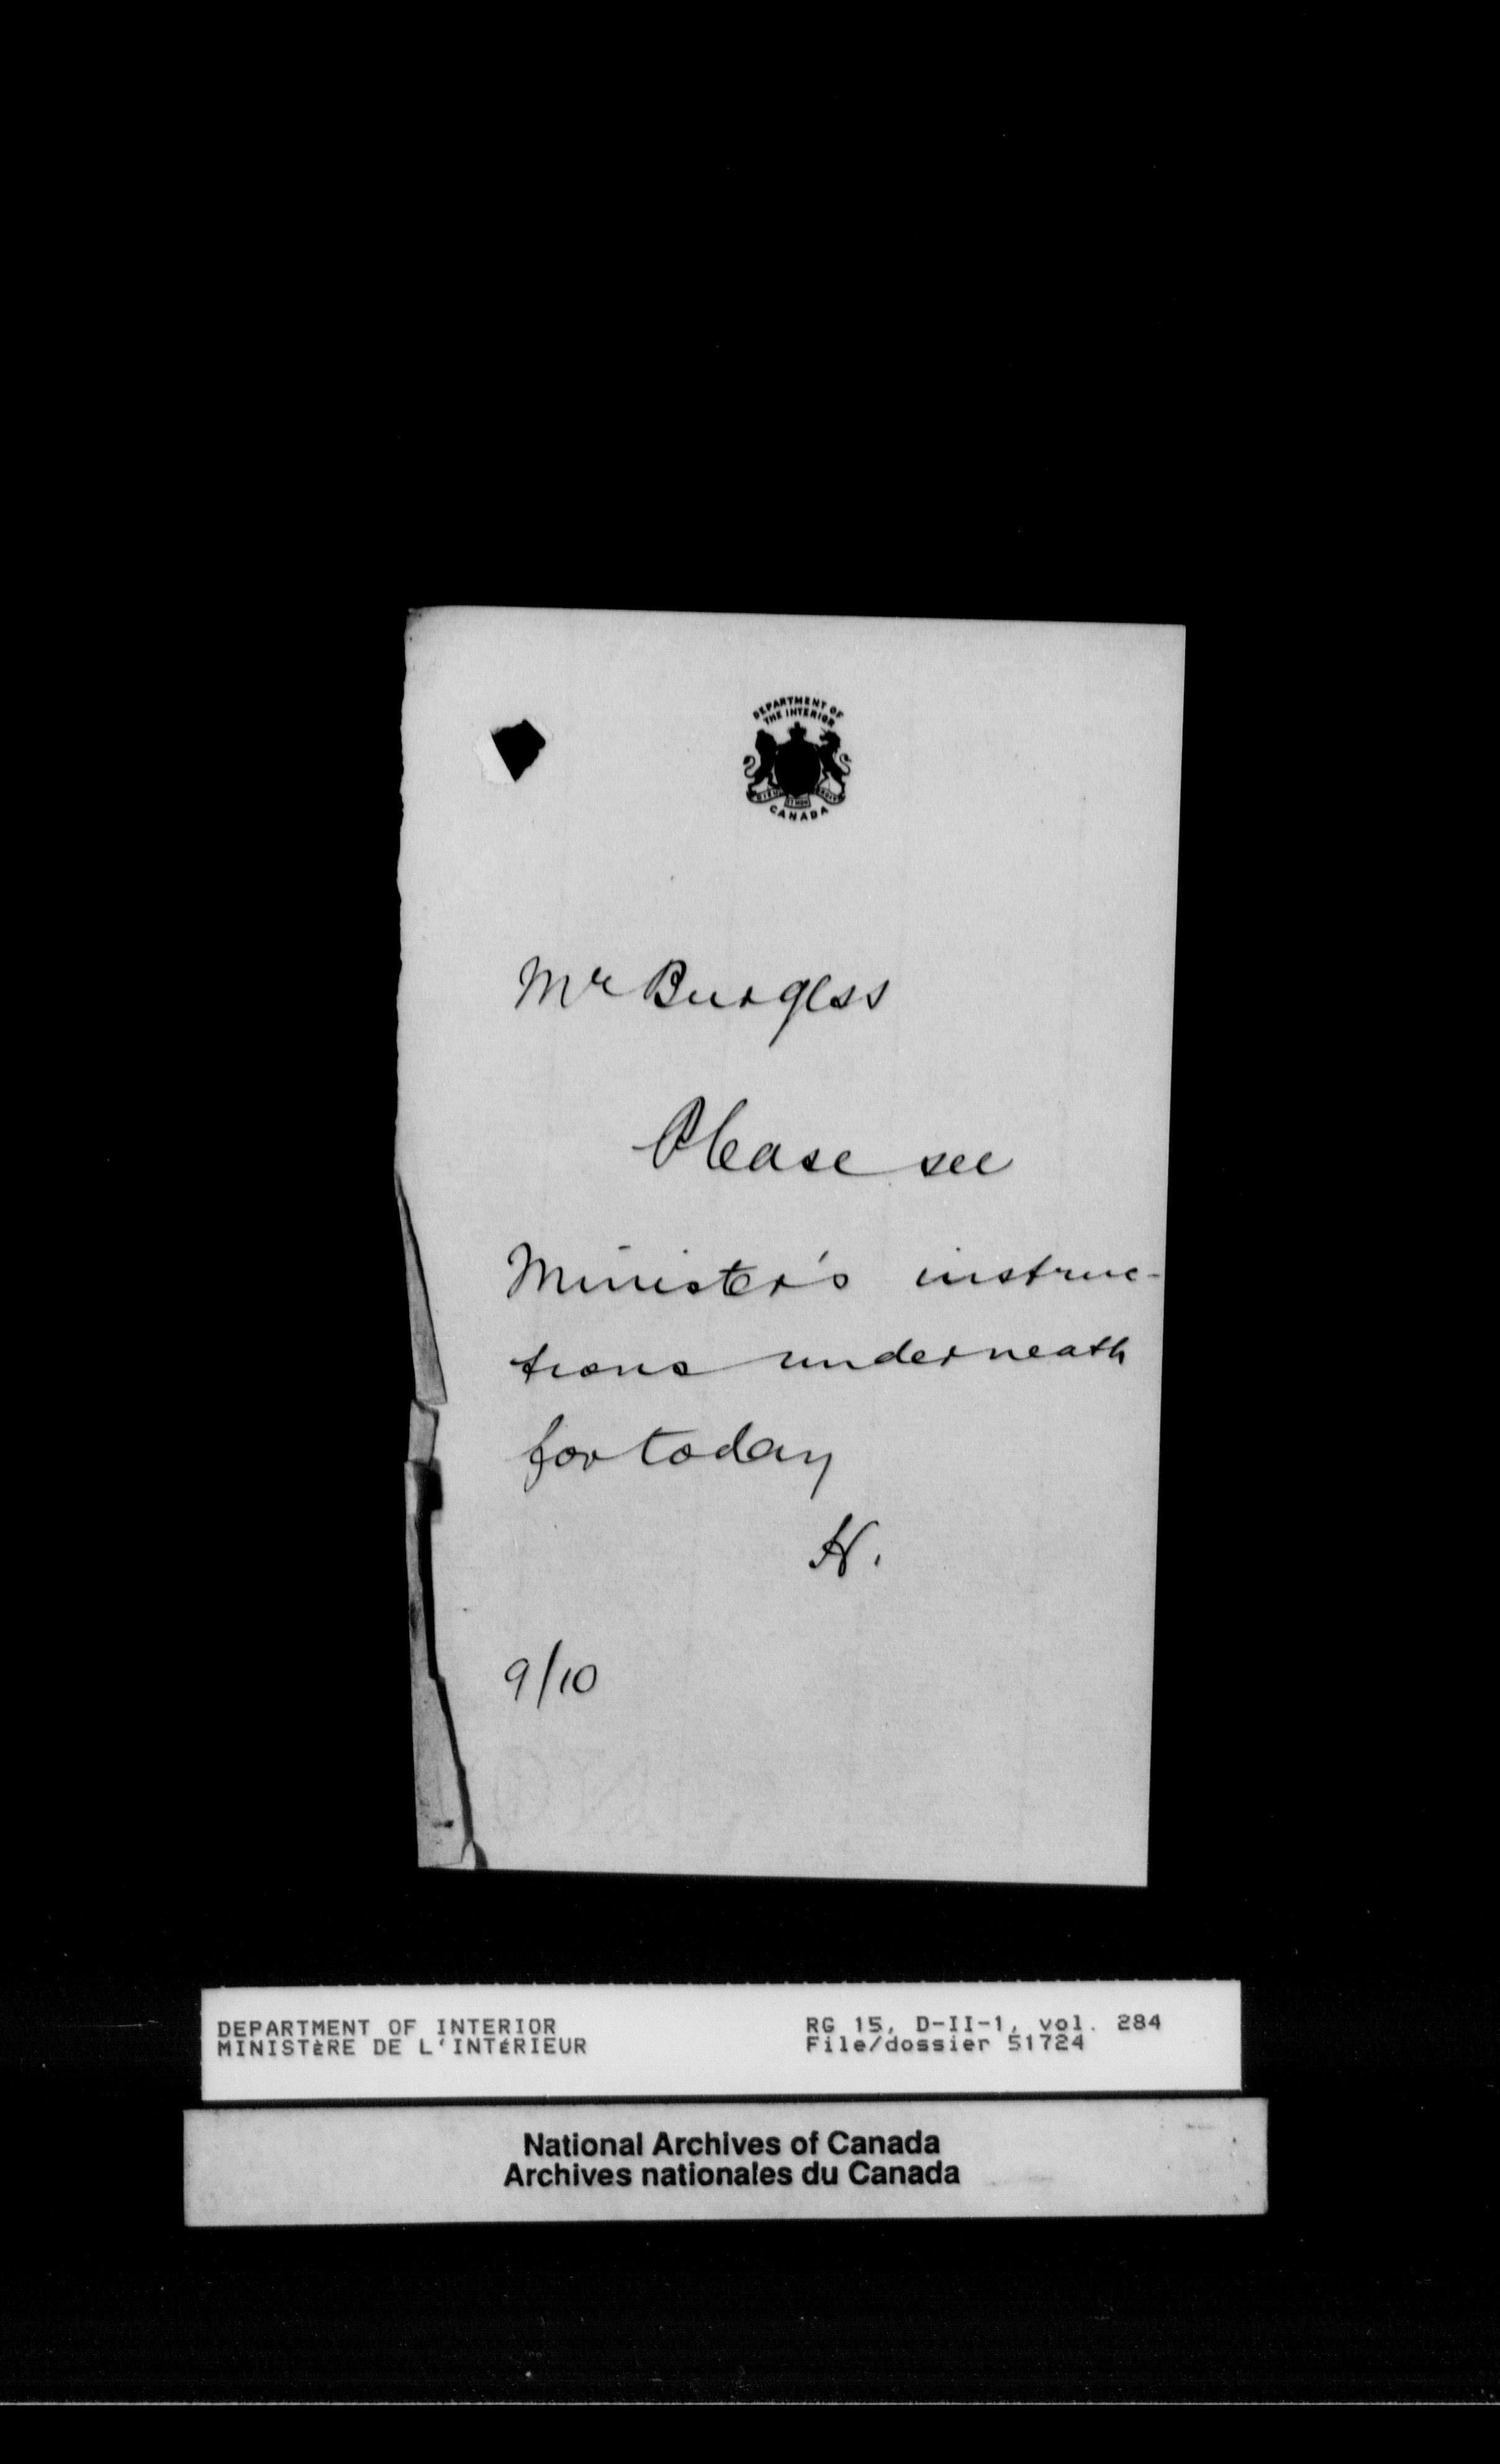 DEPARTMENT OF
THE INTERIOR
CANADA
Mr Burgess
Please see
Minister's instruc-
tions underneath
for today
H.
9/10
DEPARTMENT OF INTERIOR
MINISTÈRE DE L'INTÉRIEUR
RG 15, D-II-1, vol. 284
File/dossier 51724
National Archives of Canada
Archives nationales du Canada